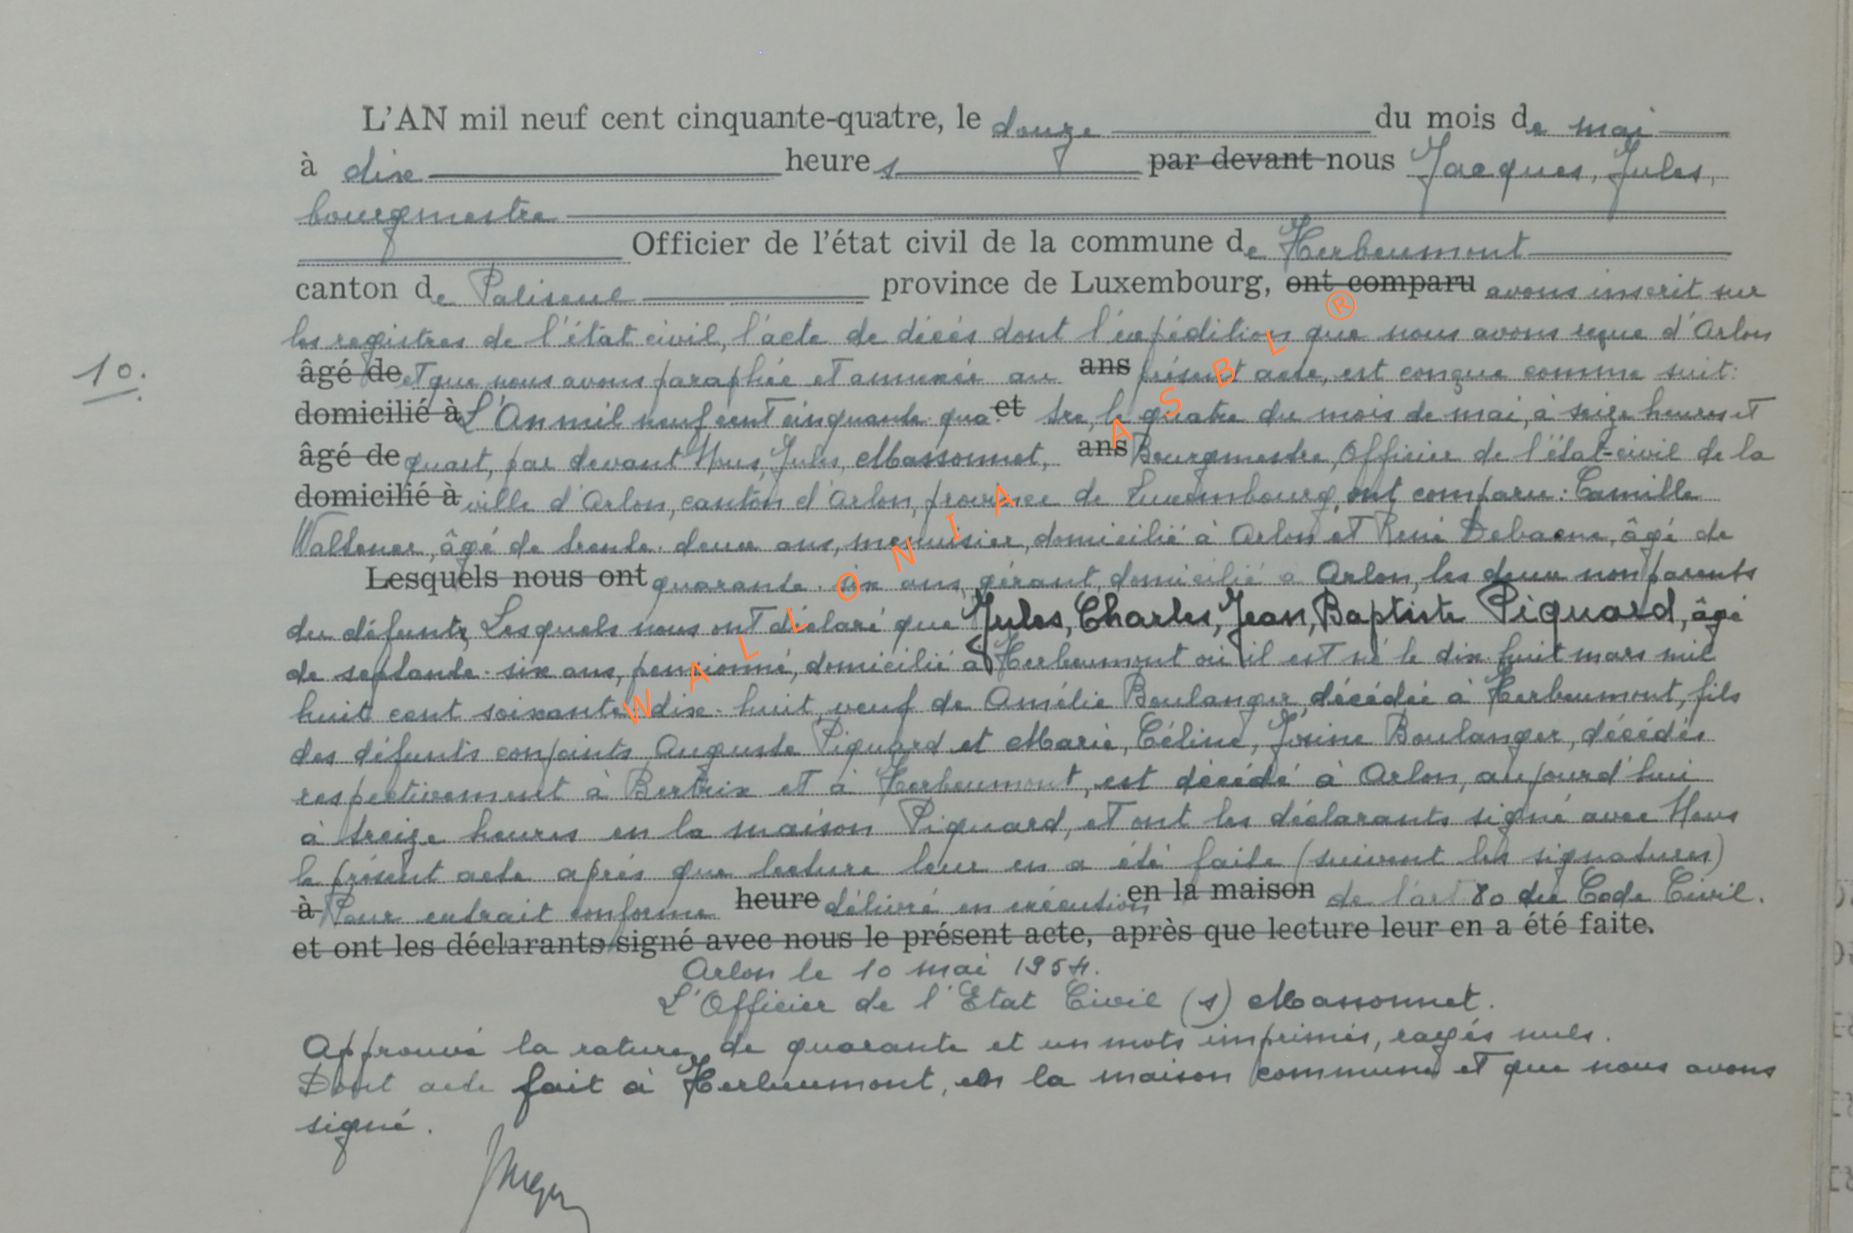 L'AN mil neuf cent cinquante-quatre, le douze du mois de mai
à dixe heures par devant nous Jacques, Jules,
bourgmestre
Officier de l'état civil de la commune de Herbeumont
canton de Paliseul province de Luxembourg, ont comparu avons inscrit sur
les registres de l'état civil, l'acte de décès dont l'expédition que nous avons reçue d'Arlon
10. âgé de et que nous avons paraphée et annexée au ans présent acte, est conçue comme suit:
domicilié à L'An mil neuf cent cinquante-qua et tre, le quatre du mois de mai, à seize heures et
âgé de quart, par devant Nous, Jules, Massonnet, ans Bourgmestre, Officier de l'état-civil de la
domicilié à ville d'Arlon, canton d'Arlon, province de Luxembourg, ont comparu: Camille
Waltener, âgé de trente-deux ans, menuisier, domicilié à Arlon et René Debaene, âgé de
Lesquels nous ont quarante-six ans, gérant, domicilié à Arlon, les deux non parents
du défunt, Lesquels nous ont déclaré que Jules, Charles, Jean, Baptiste Piquard, âgé
de septante-six ans, pensionné, domicilié à Herbeumont où il est né le dix-huit mars mil
huit cent soixante-dix-huit, veuf de Amélie Boulanger, décédée à Herbeumont, fils
des défunts conjoints Auguste Piquard et Marie, Céline, Josine Boulanger, décédés
respectivement à Bertrix et à Herbeumont, est décédé à Arlon, aujourd'hui
à treize heures en la maison Piquard, et ont les déclarants signé avec Nous
le présent acte après que lecture leur en a été faite (suivent les signatures)
à Pour extrait conforme heure délivré en exécution en la maison de l'art 80 du Code Civil.
et ont les déclarants signé avec nous le présent acte, après que lecture leur en a été faite.
Arlon le 10 mai 1954.
L'Officier de l'Etat Civil (s) Massonnet.
Approuvé la rature de quarante et un mots imprimés, rayés nuls.
Dont acte fait à Herbeumont, en la maison communes et que nous avons
signé.
WALLONIA ASBL ®